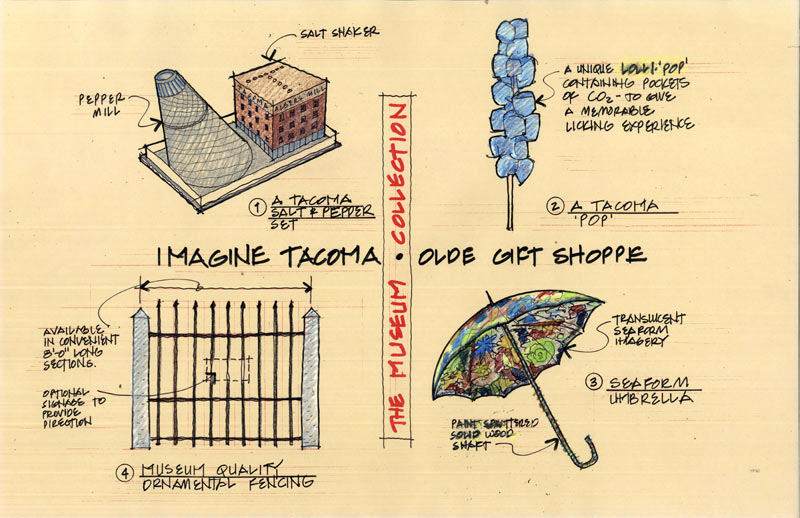 SALT SHAKER
PEPPER
MILL
TACOMA
MILL
① A TACOMA
SALT & PEPPER
SET
A UNIQUE LOLLI-'POP'
CONTAINING POCKETS
OF CO2 - TO GIVE
A MEMORABLE
LICKING EXPERIENCE
② A TACOMA
'POP'
THE MUSEUM • COLLECTION
IMAGINE TACOMA • OLDE GIFT SHOPPE
AVAILABLE
IN CONVENIENT
8'-0" LONG
SECTIONS.
OPTIONAL
SIGNAGE TO
PROVIDE
DIRECTION
④ MUSEUM QUALITY
ORNAMENTAL FENCING
TRANSLUCENT
SEAFORM
IMAGERY
③ SEAFORM
UMBRELLA
PAINT SPLATTERED
SOLID WOOD
SHAFT